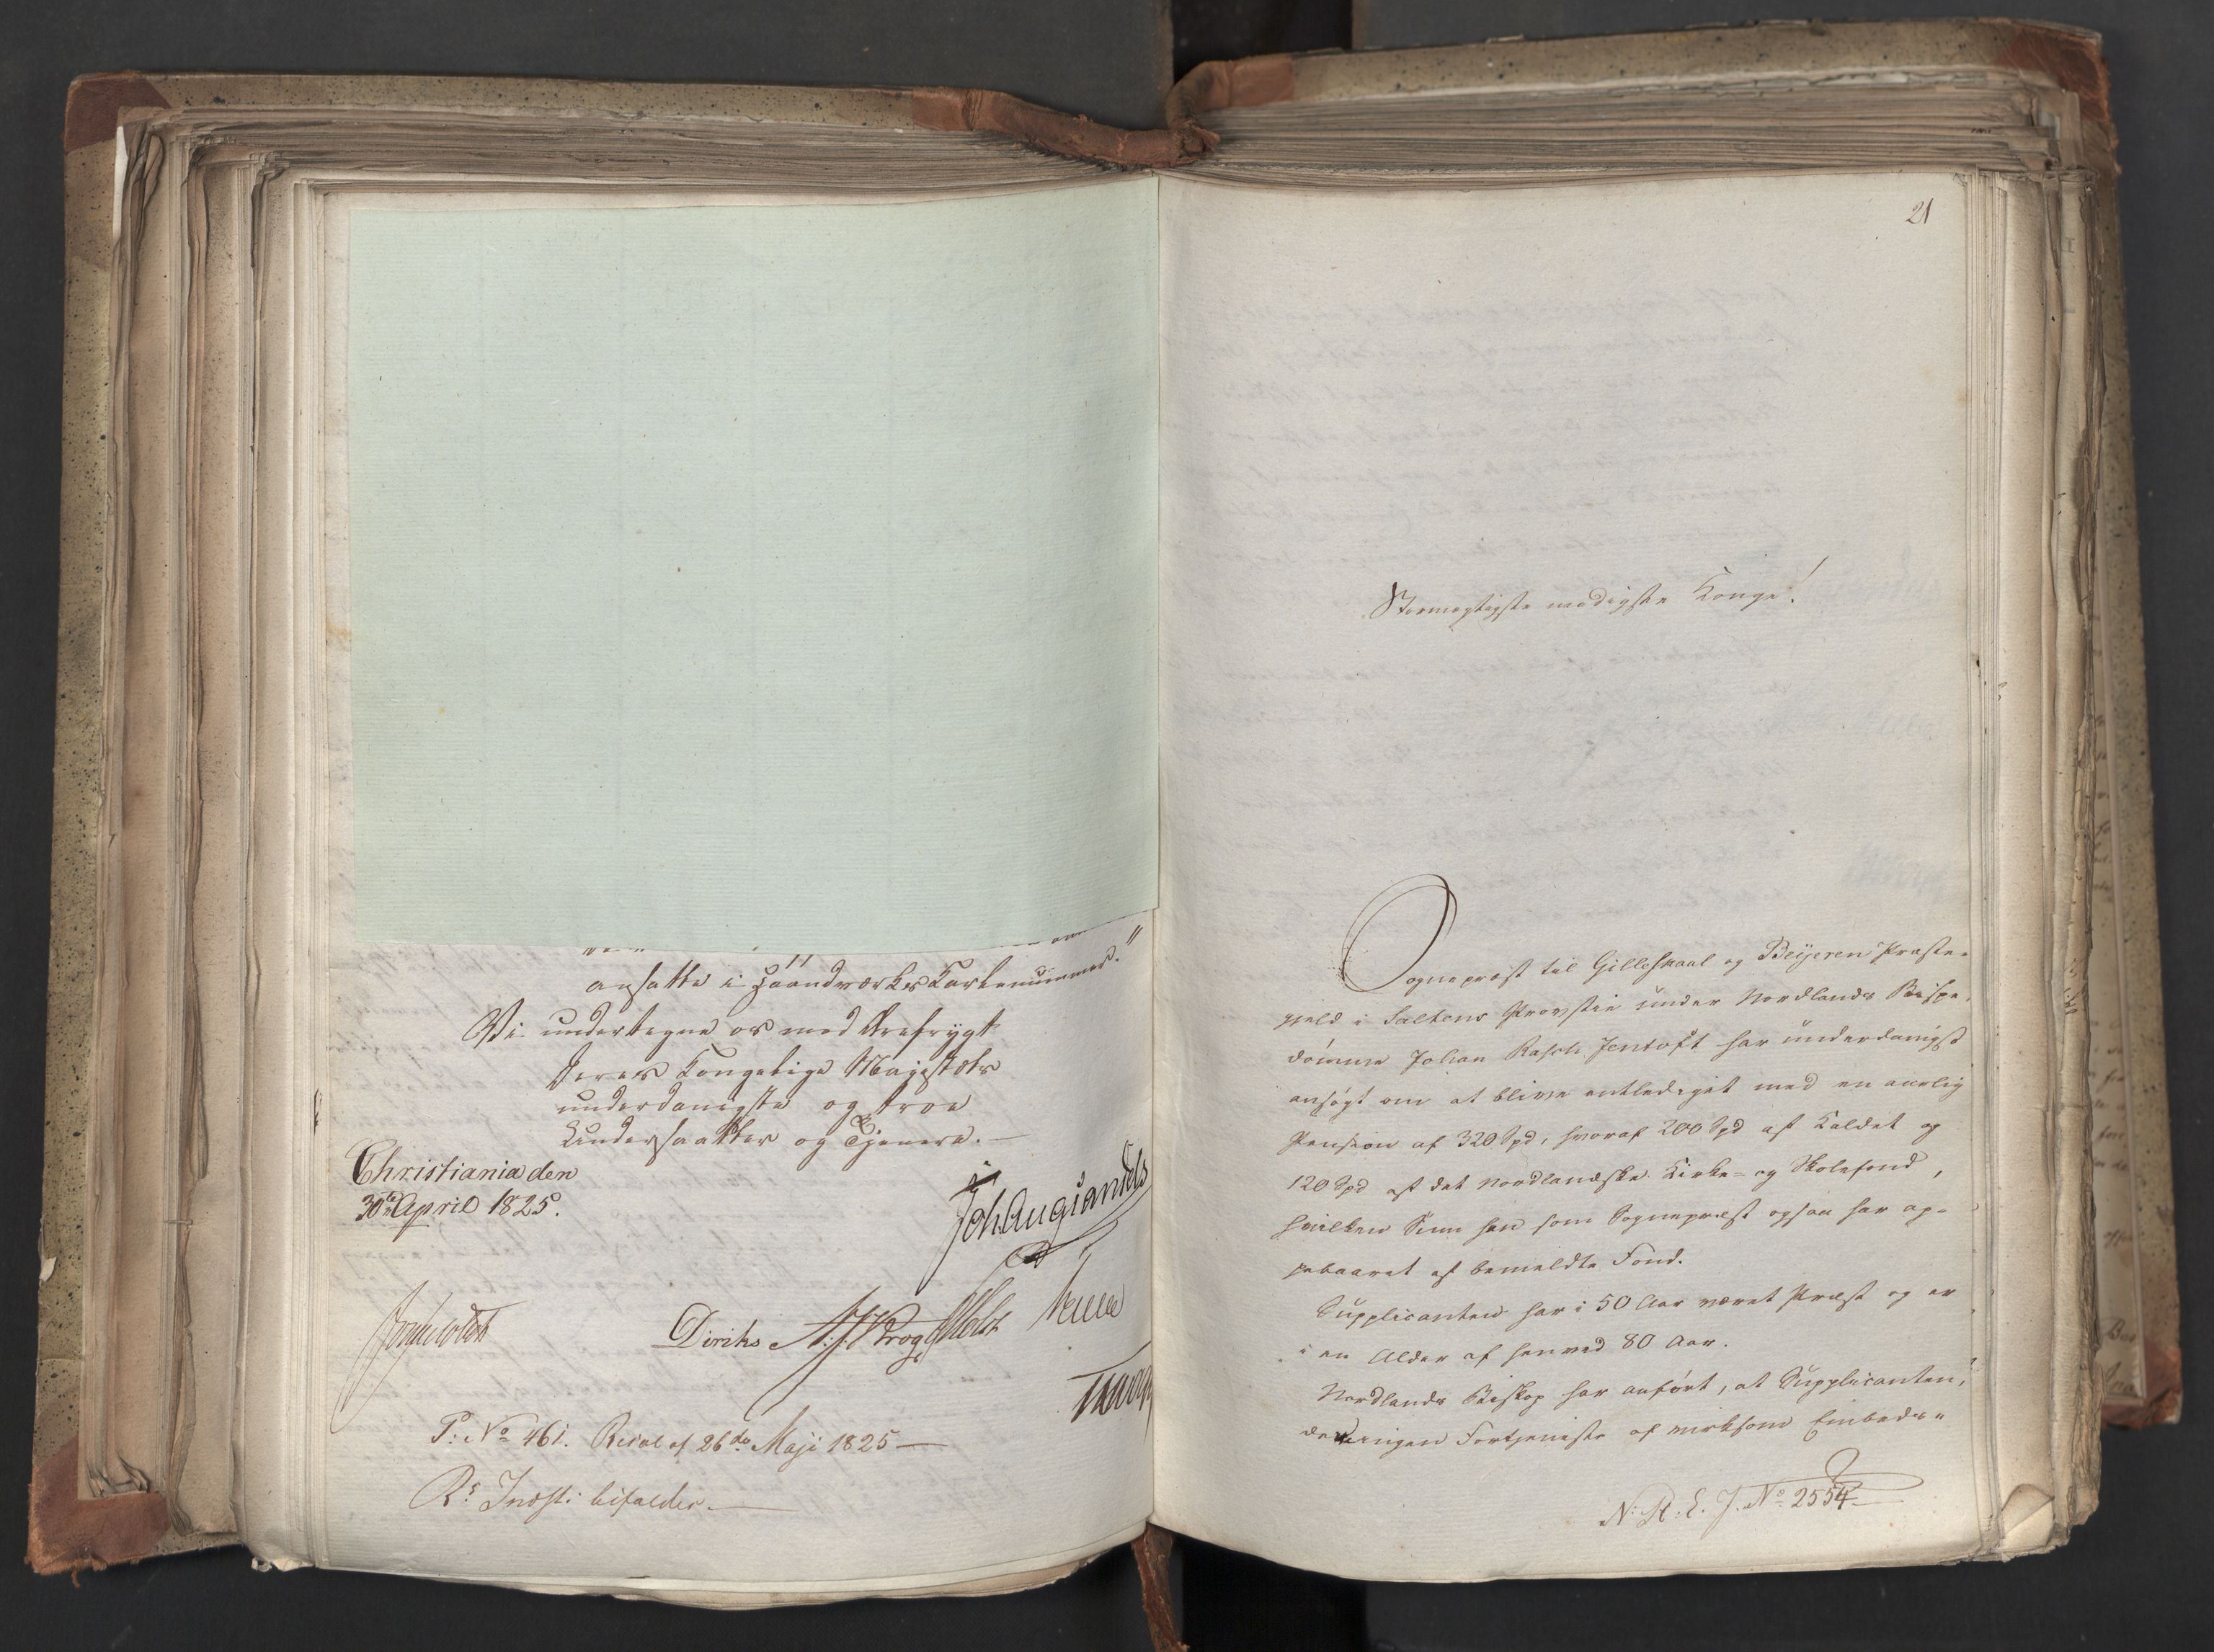 ansatte i Haandværks Kortenummer."
Vi undertegne os med Ærefrygt
Deres Kongelige Majestæts
underdanigste og troe
Undersaatter og Tjenere. —
Christiania den
30te April 1825.
Joh Aug Sandels
Diriks Krog Motz
P: No 461. Resol af 26de Maji 1825 —
Rs Indst: bifaldes. —
21
Stormægtigste naadigste Konge!
Sognepræst til Gilleskaal og Beyeren Præste-
gjeld i Saltens Provstie under Nordlands Bispe-
dømme Johan Rasch Jentoft har underdanigst
ansøgt om at blive entlediget med en aarlig
Pension af 320 Spd, hvoraf 200 Spd af Kaldet og
120 Spd af det Nordlandske Kirke- og Skolefond,
hvilken Sum han som Sognepræst ogsaa har op-
pebaaret af bemeldte Fond.
Supplicanten har i 50 Aar været Præst og er
i en Alder af henved 80 Aar.
Nordlands Biskop har anført, at Supplicanten,
Fortjeneste af virksom Embeds-
N: R: E. J. No 2554